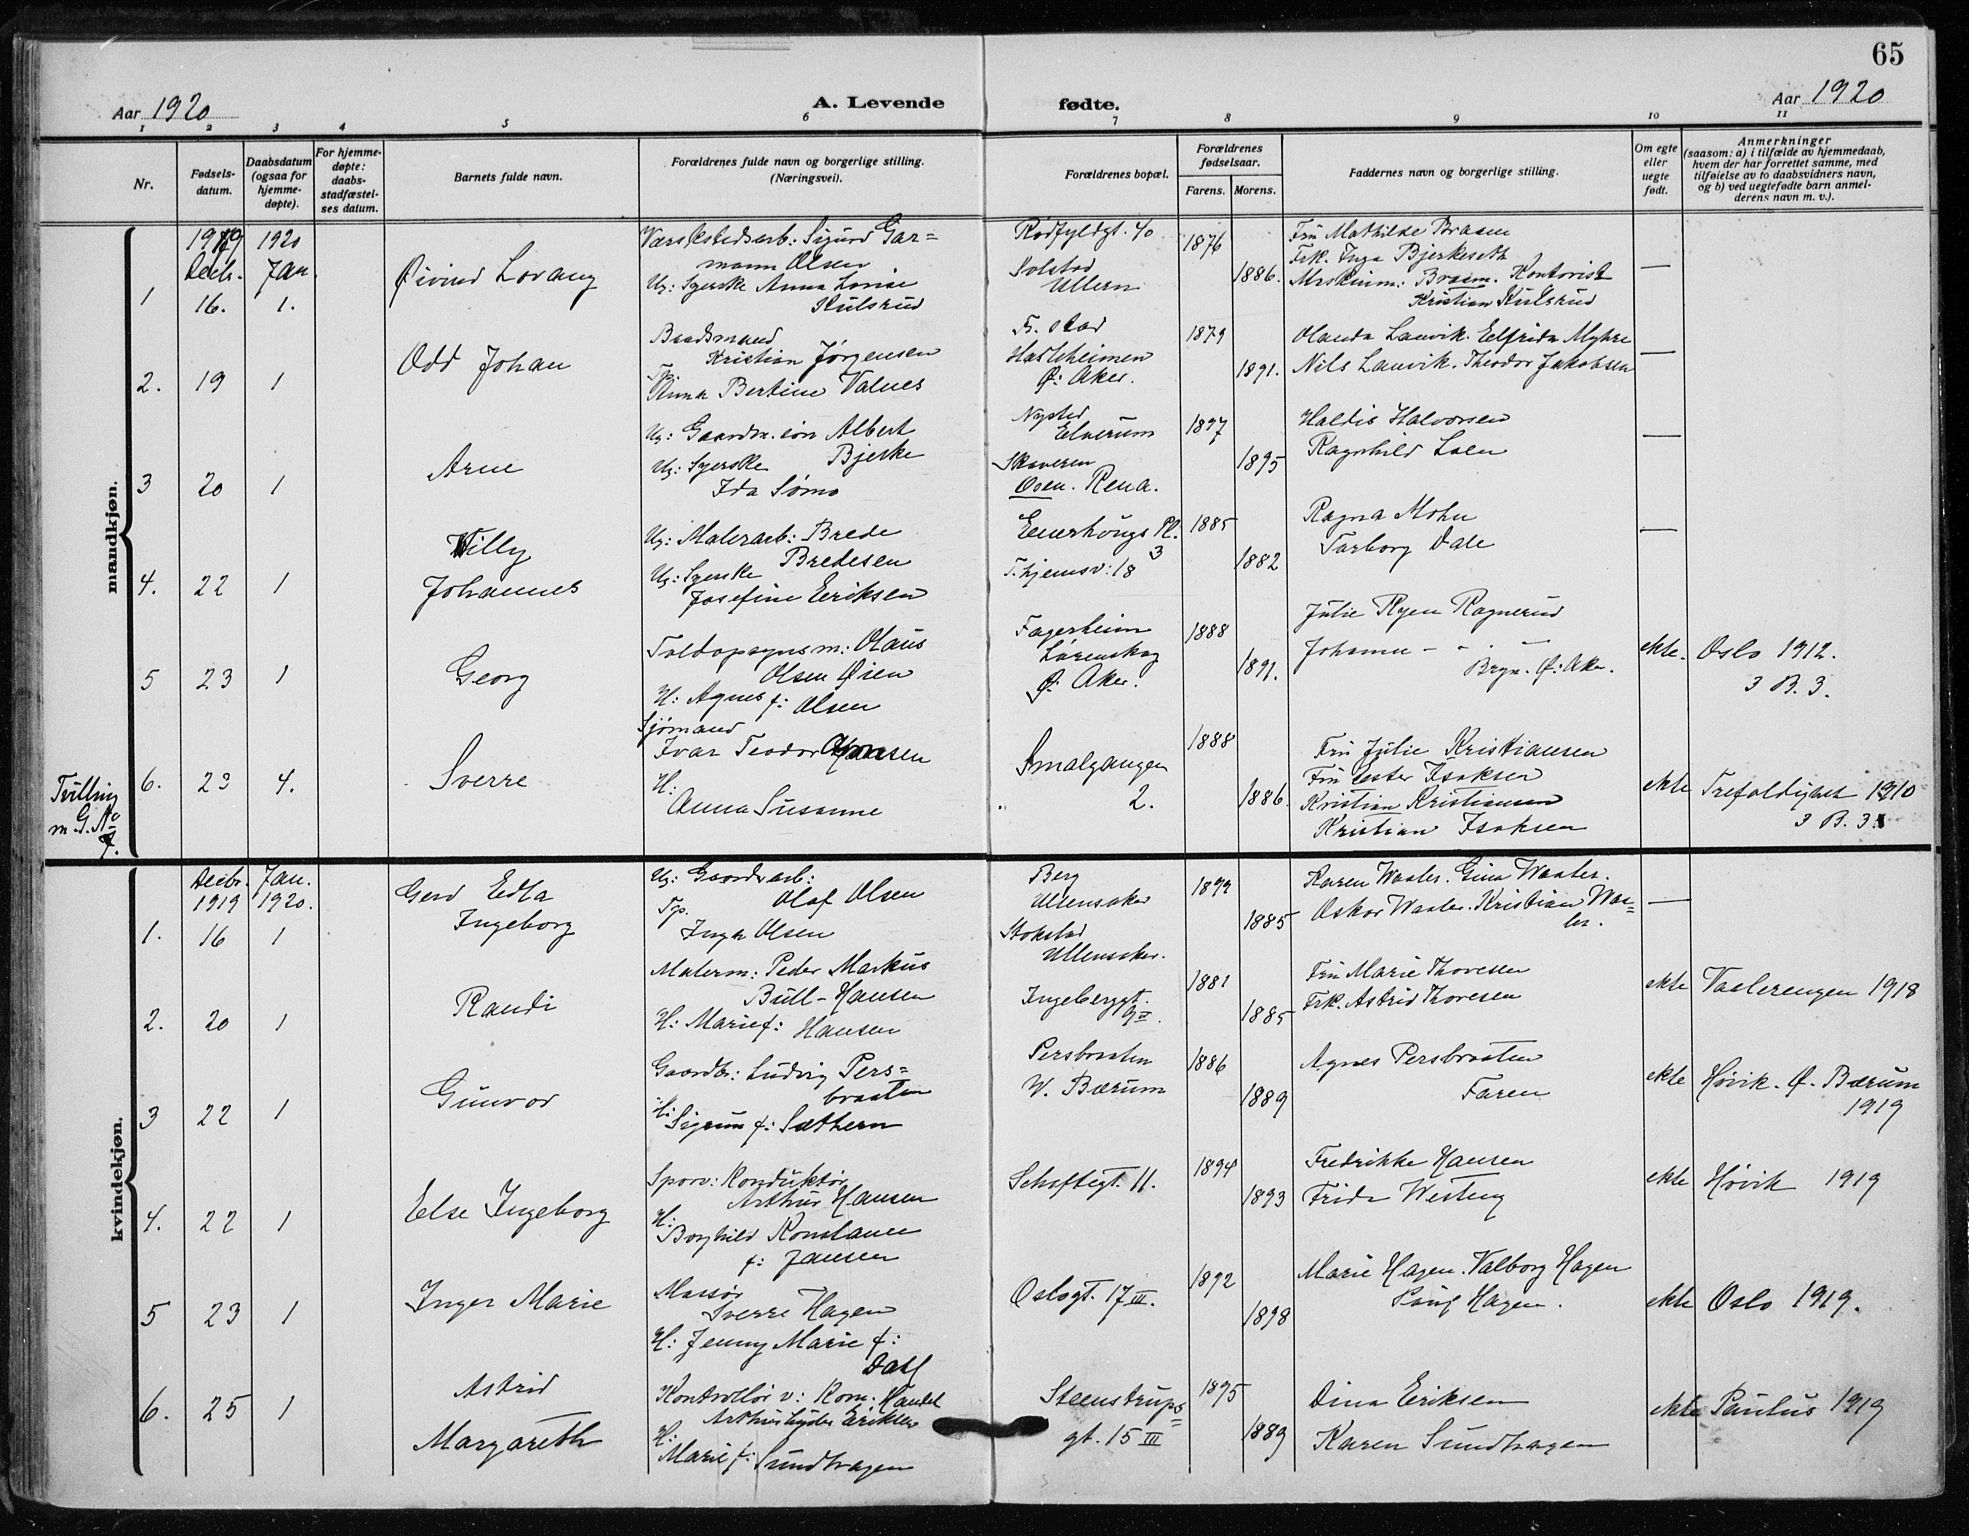 65
Aar 1920
A. Levende
fødte.
Aar 1920
1 2 3 4 5 6 7 8 9 10 11
Nr.
Fødsels-
datum.
Daabsdatum
(ogsaa for
hjemme-
døpte).
For hjemme-
døpte:
daabs-
stadfæstel-
ses datum.
Barnets fulde navn.
Forældrenes fulde navn og borgerlige stilling.
(Næringsvei).
Forældrenes bopæl.
Forældrenes
fødselsaar.
Farens. Morens.
Faddernes navn og borgerlige stilling.
Om egte
eller
uegte
født.
Anmerkninger
(saasom: a) i tilfælde av hjemmedaab,
hvem der har forrettet samme, med
tilføielse av to daabsvidners navn,
og b) ved uegtefødte barn anmel-
derens navn m. v.).
mandkjøn.
1919 1920
Decb. Jan.
1 16. 1.
Øivind Lorang
Værkstedsarb: Sigurd Gar=
mann Olsen
Ug: Syerske Anna Lovise
Kulsrud
Rødfyldgt. 40
Solstad
Ullern
1876
1886.
Fru Mathilde Braaen
Frk. Inga Bjerkeseth
Maskinm: Braaen. Kontorist
Kristian Kulsrud
—
2. 19 1
Odd Johan
Baadsmand
Kristian Jørgensen
Tp.
Anna Bertine Valnes
F. stad
Hasleheimen
Ø: Aker.
1879
1891.
Olanda Lauvik. Elfrida Myhre
Nils Lauvik. Theodor Jakobsen
—
3 20 1
Arne
Ug: Gaardm. søn Albert
Bjerke
Ug: Syerske
Ida Sømo
Nysted
Elverum
Skaveren
Osen. Rena.
1897
1895
Haldis Halvorsen
Ragnhild Loen
—
4. 22 1
Willy
Johannes
Ug: Malerarb: Brede
Bredesen
Ug: Syerske
Josefine Eriksen
Enerhougs Pl.
3
T. hjemsv: 18
1885
1882
Ragna Mohn
Tarborg Dale
—
5 23 1
Georg
Toldopsynsm: Olaus
Olsen Øien
H: Agnes f: Olsen
Fagerheim
Lørenskog
Ø: Aker.
1888
1891.
Julie Ryen Ragnerud
Johanne - - . —
Bryn. Ø: Aker.
ekte.
Oslo 1912.
3 B. 3.
Tvilling
m. G. No
7.
6. 23 4.
Sverre
Sjømand
Ivar Teodor Hansen
H:
Anna Susanne
Smalgangen
2.
1888
1886.
Fru Julie Kristiansen
Fru Ester Isaksen
Kristian Kristiansen
Kristian Isaksen
ekte
Trefoldighet 1910
3 B. 3.
kvindekjøn.
Decbr. Jan.
1919 1920.
1. 16 1
Gerd Edla
Ingeborg
Ug: Gaardsarb:
Olaf Olsen
Tp.
Inga Olsen
Berg
Ullensaker
Stokstad
Ullensaker.
1899
1885
Karen Waaler. Gina Waaler.
Oskar Waaler. Kristian Waa=
ler.
—
2. 20 1
Randi
Malerm: Peder Markus
Bull-Hansen
H: Marie f: Hansen
Ingeborggt.
9 II.
1881
1885
Fru Marie Thoresen
Frk. Astrid Thoresen
ekte
Vaalerengen 1918
3 22 1
Gunvor
Gaardbr: Ludvig Pers=
braaten
H:
Sigrun f: Sæthern
Persbraaten
V. Bærum
1886
1889
Agnes Persbraaten
Faren
ekte
Høvik. Ø. Bærum
1919
4. 22 1
Else Ingeborg
Sporv: Konduktør
Arthur Hansen
H:
Borghild Konstance
f: Jansen
Schaftegt. 11.
1894
1893
Fredrikke Hansen
Frida Westeng
ekte
Høvik 1919
5 23 1
Inger Marie
Massør
Sverre Hagen
H: Jenny Marie f:
Dahl
Oslogt. 17 III.
1892
1898
Marie Hagen. Valborg Hagen
Poul Hagen.
ekte
Oslo 1919.
6. 25 1
Astrid
Margareth
Kontrollør v: Kom: Handel
Arthur Eriksen
H:
Marie f: Sundhagen
Steenstrups=
gt. 15 III
1895
1889
Dina Eriksen
Karen Sundhagen
ekte
Paulus 1919